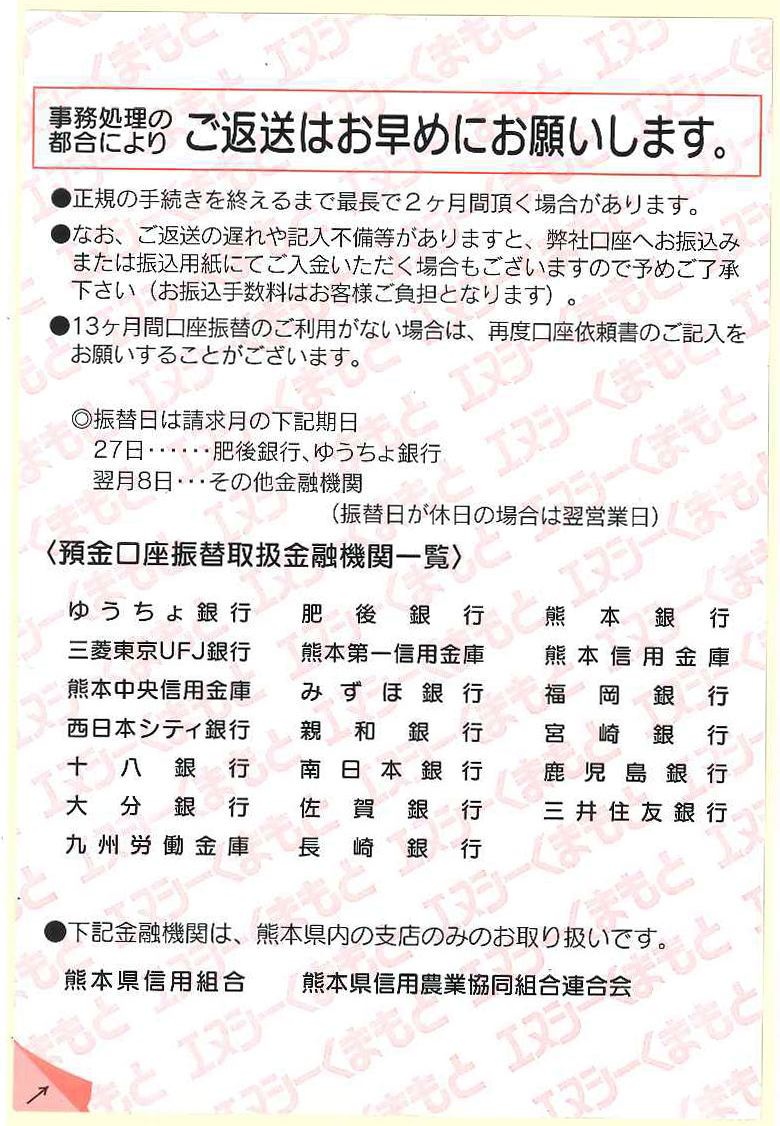 事務処理の
都合により ご返送はお早めにお願いします。
●正規の手続きを終えるまで最長で2ヶ月間頂く場合があります。
●なお、ご返送の遅れや記入不備等がありますと、弊社口座へお振込み
または振込用紙にてご入金いただく場合もございますので予めご了承
下さい（お振込手数料はお客様ご負担となります）。
●13ヶ月間口座振替のご利用がない場合は、再度口座依頼書のご記入を
お願いすることがございます。
◎振替日は請求月の下記期日
27日‥‥‥肥後銀行、ゆうちょ銀行
翌月8日･･･その他金融機関
（振替日が休日の場合は翌営業日）
〈預金口座振替取扱金融機関一覧〉
ゆうちょ銀行 肥後銀行 熊本銀行
三菱東京UFJ銀行 熊本第一信用金庫 熊本信用金庫
熊本中央信用金庫 みずほ銀行 福岡銀行
西日本シティ銀行 親和銀行 宮崎銀行
十八銀行 南日本銀行 鹿児島銀行
大分銀行 佐賀銀行 三井住友銀行
九州労働金庫 長崎銀行
●下記金融機関は、熊本県内の支店のみのお取り扱いです。
熊本県信用組合 熊本県信用農業協同組合連合会
エヌシーくまもと